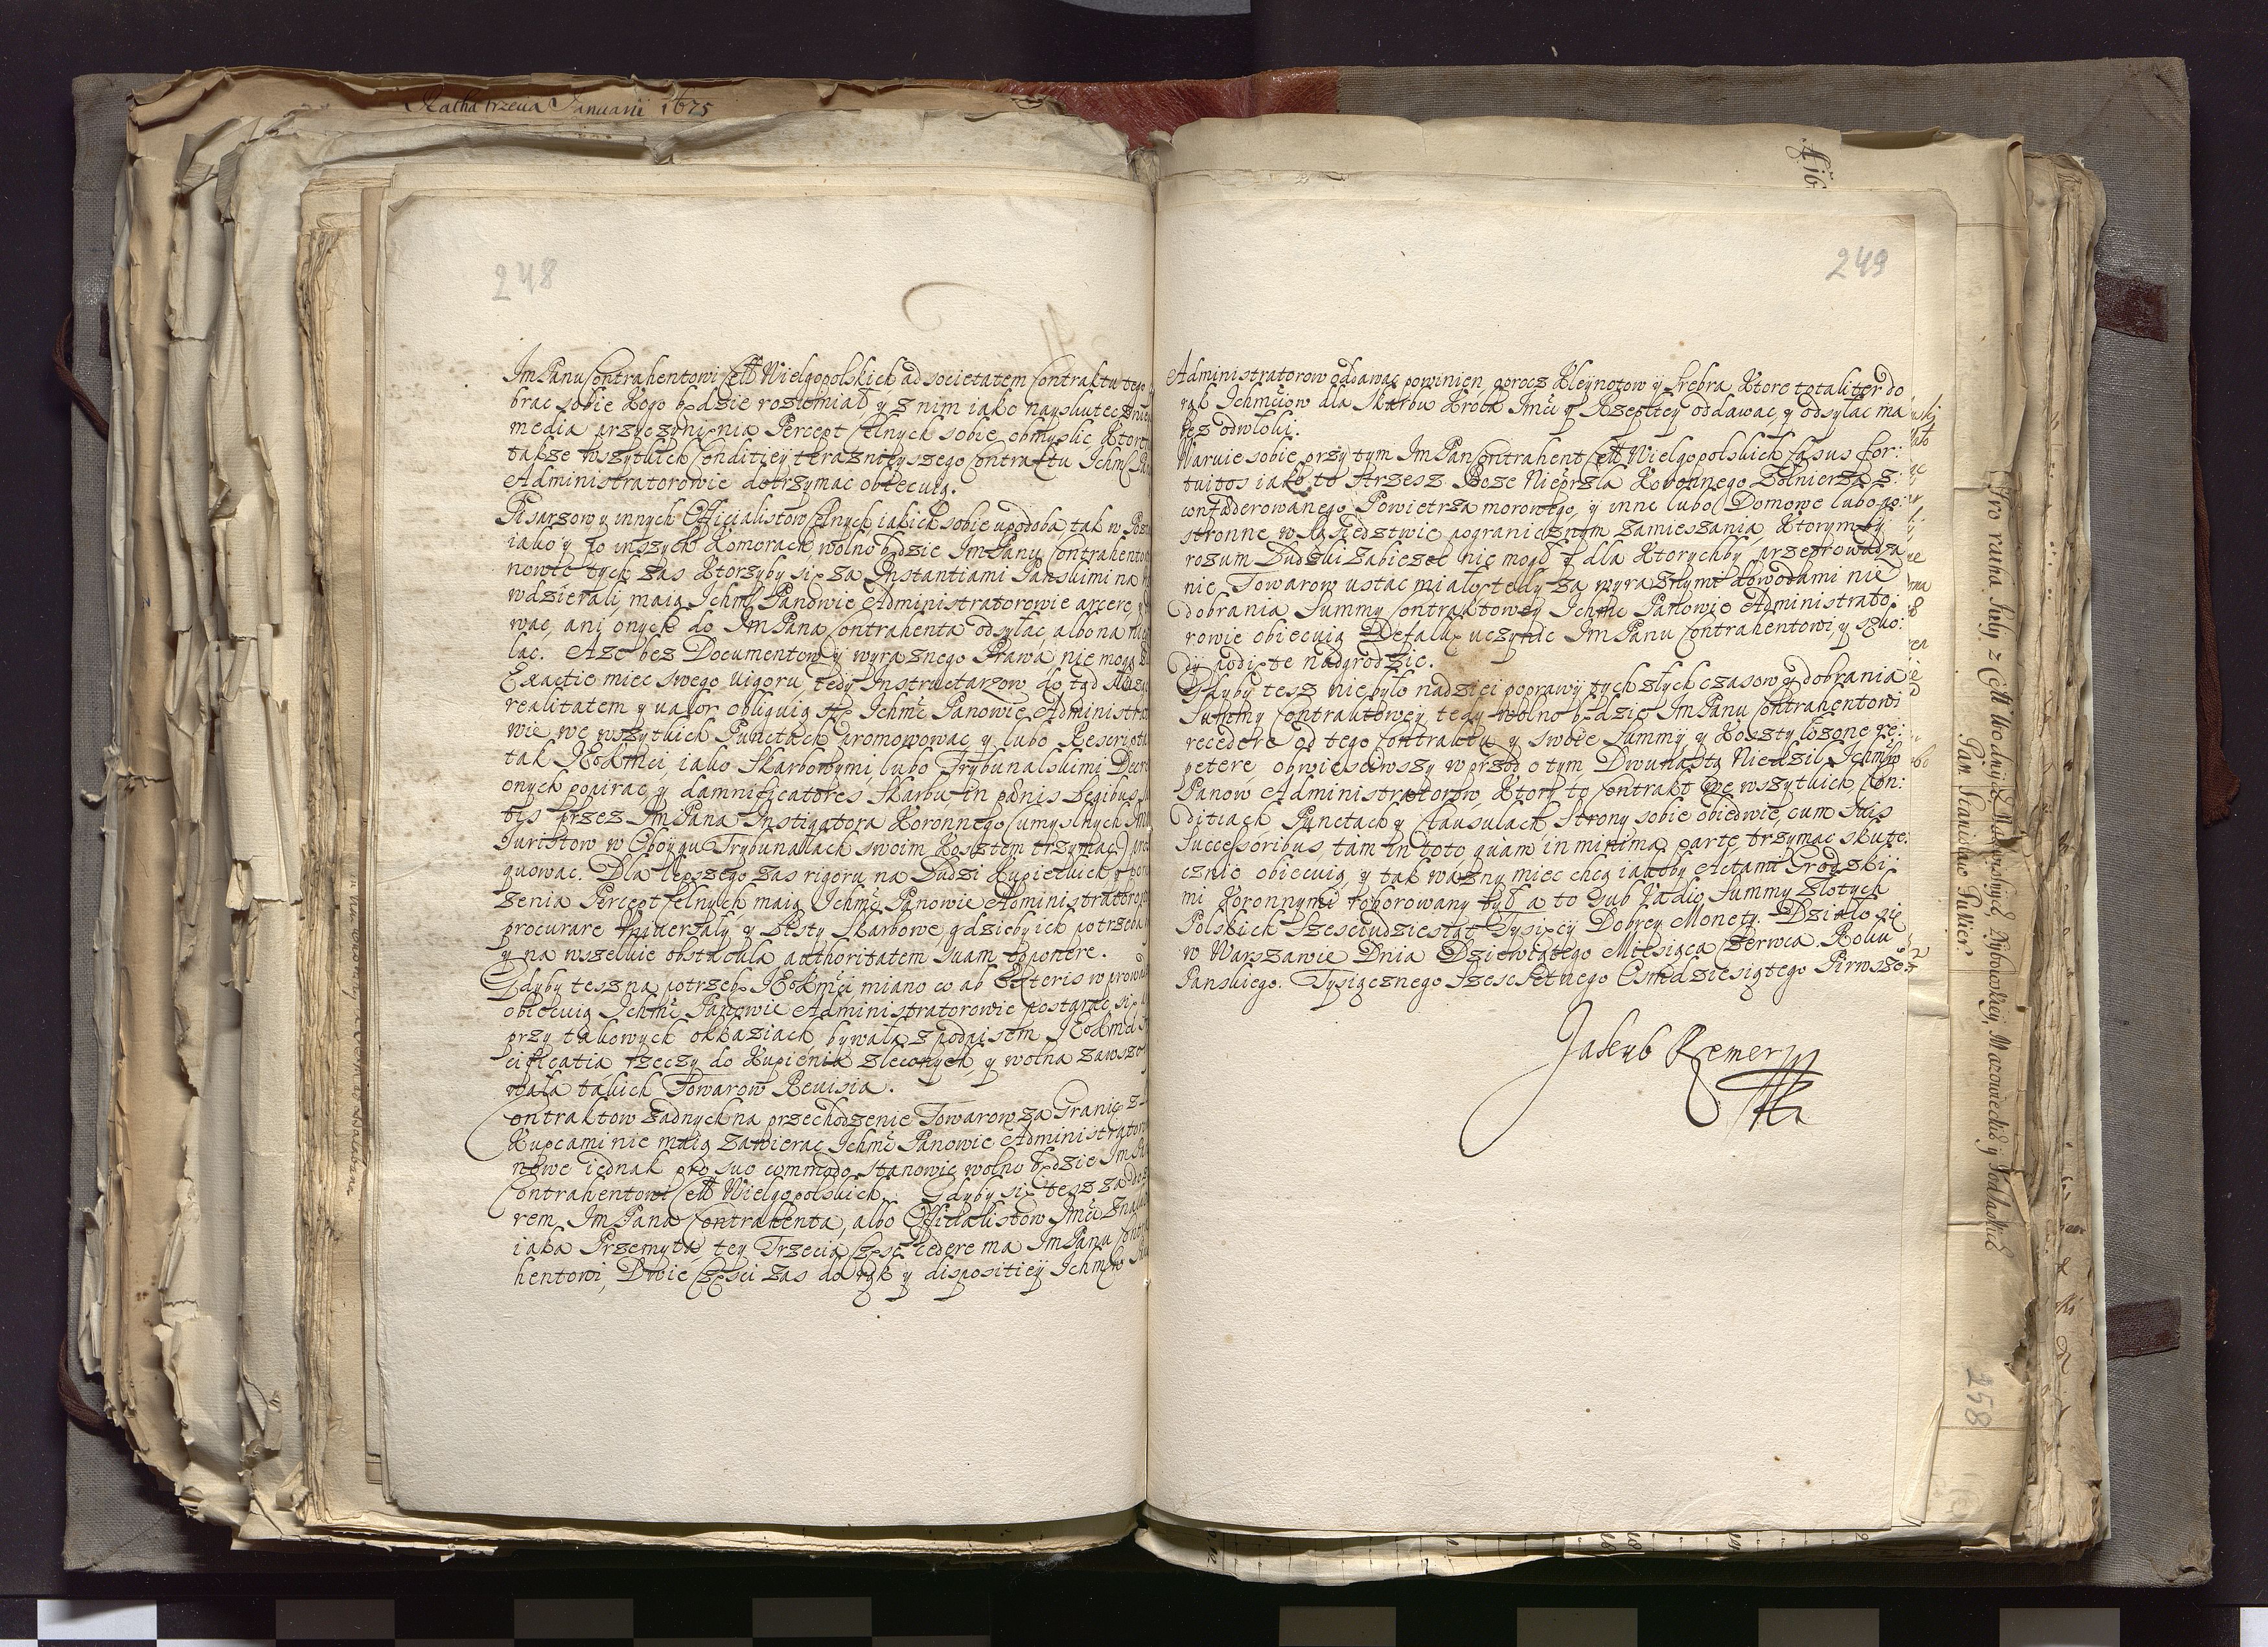 Ratha trzecia Januarii 1675
248
ImPanu Contrahentowi Cełł Wielgopolskich ad societatem Contraktu tego
brac sobie kogo będzie rozumiał y z nim iako nayskuteczniey
media przyczynięnia Percept Celnych sobie obmyslic, Ktore
takze wszytkich Conditiey teraznieyszego Contraktu Ichmć
Administratorowie dotrzymac obiecuią.
Pisarzow y innych Officialistow Celnych iakich sobie upodoba, tak w
iako y po inszych Komorach wolno będzie ImPanu Contrahentowi
nowic tych zas Ktorzyby się za Instantiami Panskimi na
wdzierali maią Ichmć Panowie Administratorowie arcere,
wac, ani onych do ImPana Contrahenta odsyłac, albo na
lac. Aze bez Documentow y wyraznego Prawa nie mogą
Exactie miec swego vigoru, tedy Instructarzow do tąd
realitatem y valor obliguią się Ichmć Panowie Administrato
wie we wszytkich Punctach promowowac y lubo Rescripta
tak JEoKmci, iako Skarbowymi lubo Trybunalskimi
onych popirac, y damnificatores Skarbu in pœnis Legibus
tis przez ImPana Instigatora Koronnego (umyslnych
Juristow w Oboygu Trybunałach swoim Kosztem trzymac)
quowac. Dla lepszego zas rigoru na Ludzi Kupieckich y
zenia Percept Celnych maią Ichmć Panowie Administratorowie
procurare Vniversały, y Listy Skarbowe, gdzieby ich potrzeba
y na wszelkie obstacula authoritatem suam opponere.
Gdyby tesz na potrzebę JEoKmci miano co ab Exteris
obiecuią Ichmć Panowie Administratorowie postarac się
przy takowych okkaziach bywała z podpisem JEoKmci
cificatia rzeczy do Kupienia zleconych, y wolna zawsze
wała takich Towarow Revisia.
Contraktow żadnych na przechodzenie Towarow za Granię z
Kupcami nie maią zawierac Ichmć Panowie Administratorowie
nowe iednak pro suo commodo stanowic wolno będzie Im
Contrahentowi Cełł Wielgopolskich. Gdyby się tesz za
rem ImPana Contrahenta, albo Officialistow Jmci
iaka Przemyta, tey Trzecia Częsc cedere ma ImPanu
hentowi, Dwie Częsci zas do rąk y dispositiey Ichmć
249
Administratorow oddawac powinien, oprocz Kleynotow y srebra Ktore totaliter do
rąk Ichmciow dla Skarbu Krola Jmci y Rzeplitey oddawac, y odsyłac ma
bez odwłoki.
Waruie sobie przy tym ImPan Contrahent Cełł Wielgopolskich Casus for:
tuitos iako to strzesz Boze Nieprzla Koronnego Zołnierza z:
confœderowanego, Powietrza morowego, y inne lubo Domowe lubo po:
stronne w Sąsiedztwie pogranicznym zamieszania, Ktorym by
rozum Ludzki zabiezec nie mogł y dla Ktorychby przeprowadza
nie Towarow ustac miało, tedy za wyraznymi dowodami nie
dobrania Summy Contraktowey Ichmć Panowie Administrato:
rowie obiecuią Defalkę uczynic ImPanu Contrahentowi, y szko:
dy podięte nadgrodzic.
Gdyby tesz nie było nadziei poprawy tych złych czasow y dobrania
Summy Contraktowey, tedy wolno będzie ImPanu Contrahentowi
recedere od tego Contraktu, y swoie Summy y Koszty łozone re:
petere, obwiesciwszy w przod o tym Dwunastą Niedzil Ichmć
Panow Administratorow, Ktory to Contrakt we wszytkich Con:
ditiach, Punctach y Clausulach, Strony sobie obiedwie, cum suis
Successoribus, tam in toto, quam in minima parte trzymac skute:
cznie obiecuią, y tak wazny miec chcą iakoby Actami Grodzki
mi Koronnymi roborowany był a to sub Vadio Summy Złotych
Polskich Szesciudziesiąt Tysięcy Dobrey Monety. Działo się
w Warszawie Dnia Dziewiątego Miesiąca Czerwca. Roku
Panskiego. Tysiącznego Szescsetnego Osmdziesiątego Pirwszego
Jakub Remer
Pro ratha July z Cełł Wodnych Mazowieckich y Podlaskich
Pan Stanisław
258